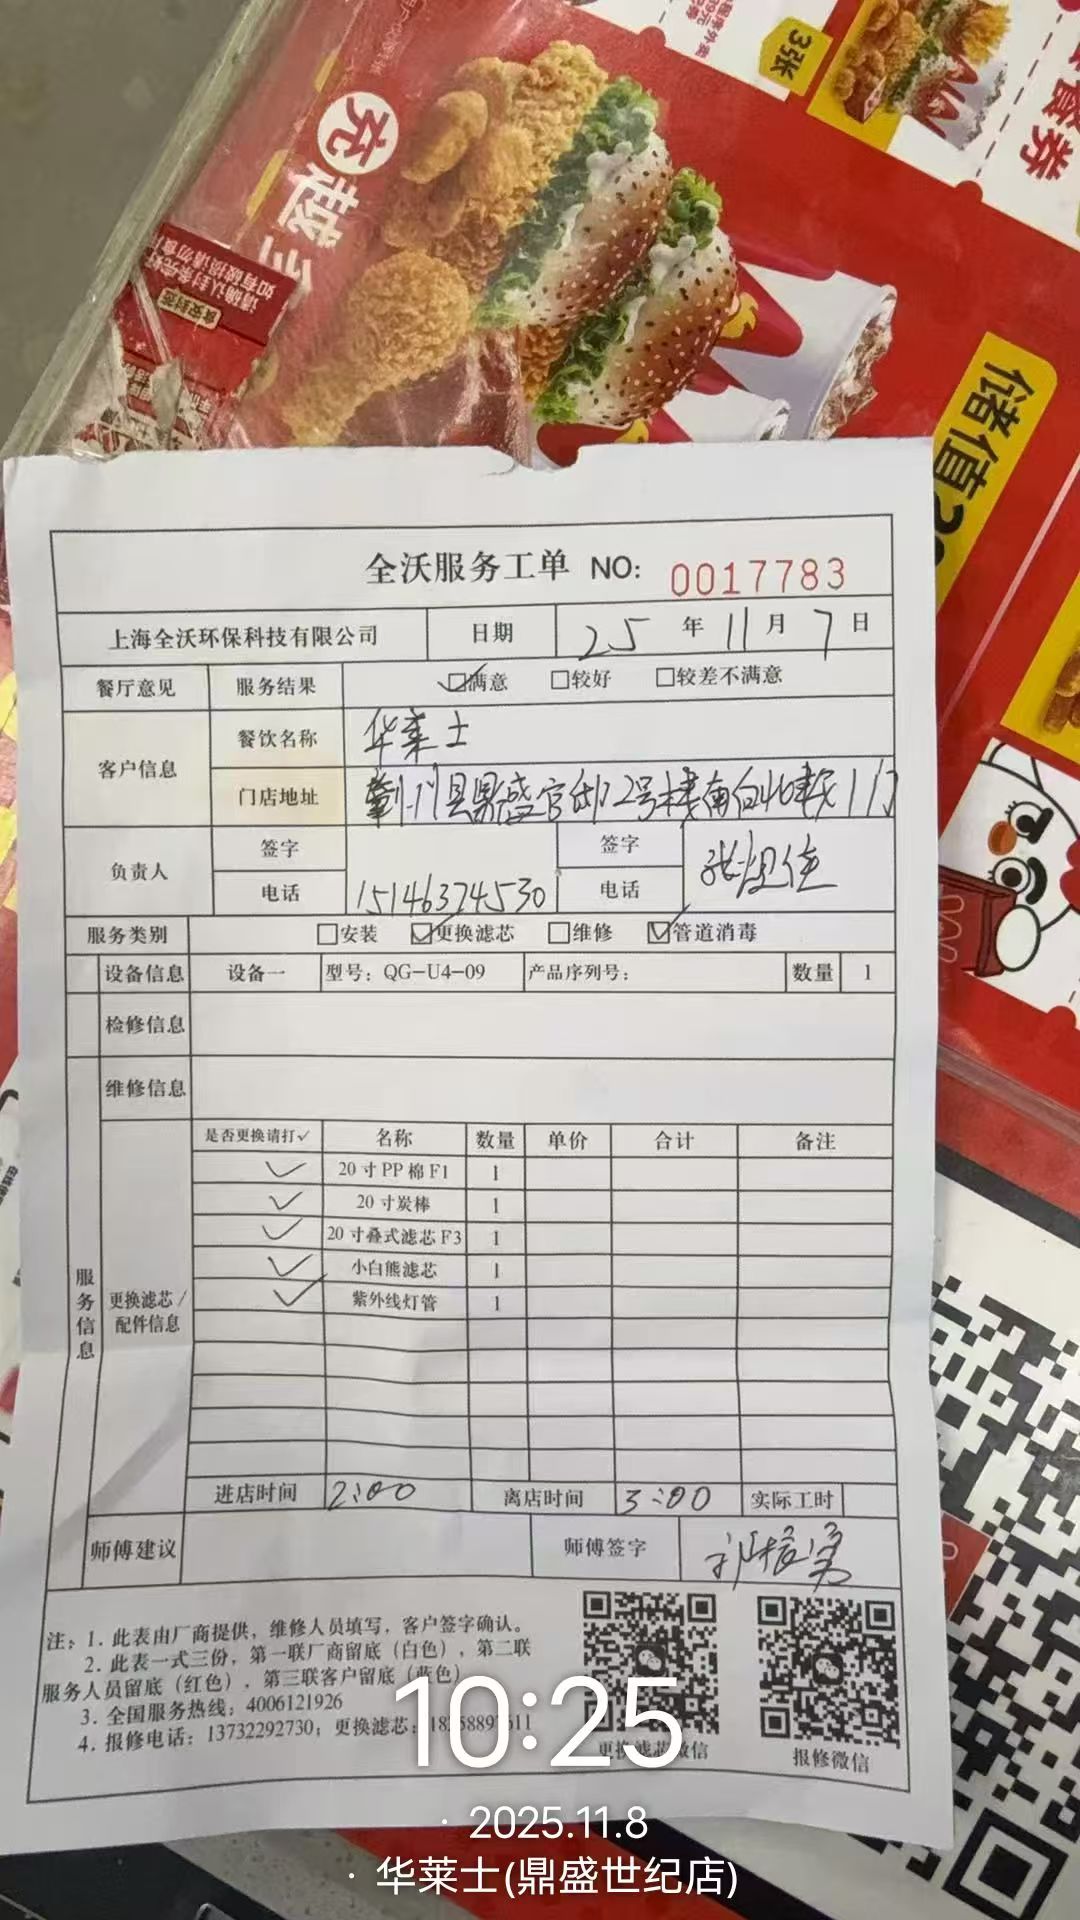 充
越
3张
餐券
储值
请确认封条完好
如有破损请勿食用
食安封签
全沃服务工单 NO: 0017783
上海全沃环保科技有限公司 日期 25 年 11 月 7 日
餐厅意见 服务结果 ☑满意 □较好 □较差不满意
客户信息 餐饮名称 华莱士
门店地址 县鼎盛官邸2号楼南向北 门
负责人 签字 签字
电话 15146374530 电话
服务类别 □安装 ☑更换滤芯 □维修 ☑管道消毒
设备信息 设备一 型号：QG-U4-09 产品序列号： 数量 1
检修信息
维修信息
服务信息
更换滤芯/
配件信息
是否更换请打✓ 名称 数量 单价 合计 备注
✓ 20寸PP棉F1 1
✓ 20寸炭棒 1
✓ 20寸叠式滤芯F3 1
✓ 小白熊滤芯 1
✓ 紫外线灯管 1
进店时间 2:00 离店时间 3:00 实际工时
师傅建议 师傅签字
注：1. 此表由厂商提供，维修人员填写，客户签字确认。
2. 此表一式三份，第一联厂商留底（白色），第二联
服务人员留底（红色），第三联客户留底（蓝色）
3. 全国服务热线：4006121926
4. 报修电话：13732292730；更换滤芯：
更换滤芯微信 报修微信
10:25
· 2025.11.8
· 华莱士(鼎盛世纪店)